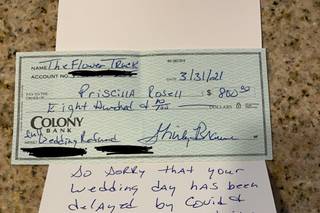 NAME The Flower Truck
ACCOUNT NO.
DATE 3/31/21
PAY TO THE ORDER OF Priscilla Rosell $ 800 00
Eight Hundred & DOLLARS
COLONY
BANK
MEMO full Wedding Refund
So sorry that your
wedding day has been
delayed by Covid &